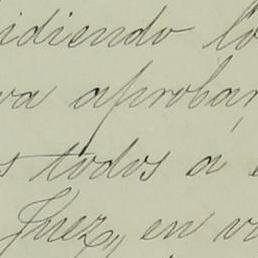 idiendo lo
va aprobar
s todos á e
Juez, en v